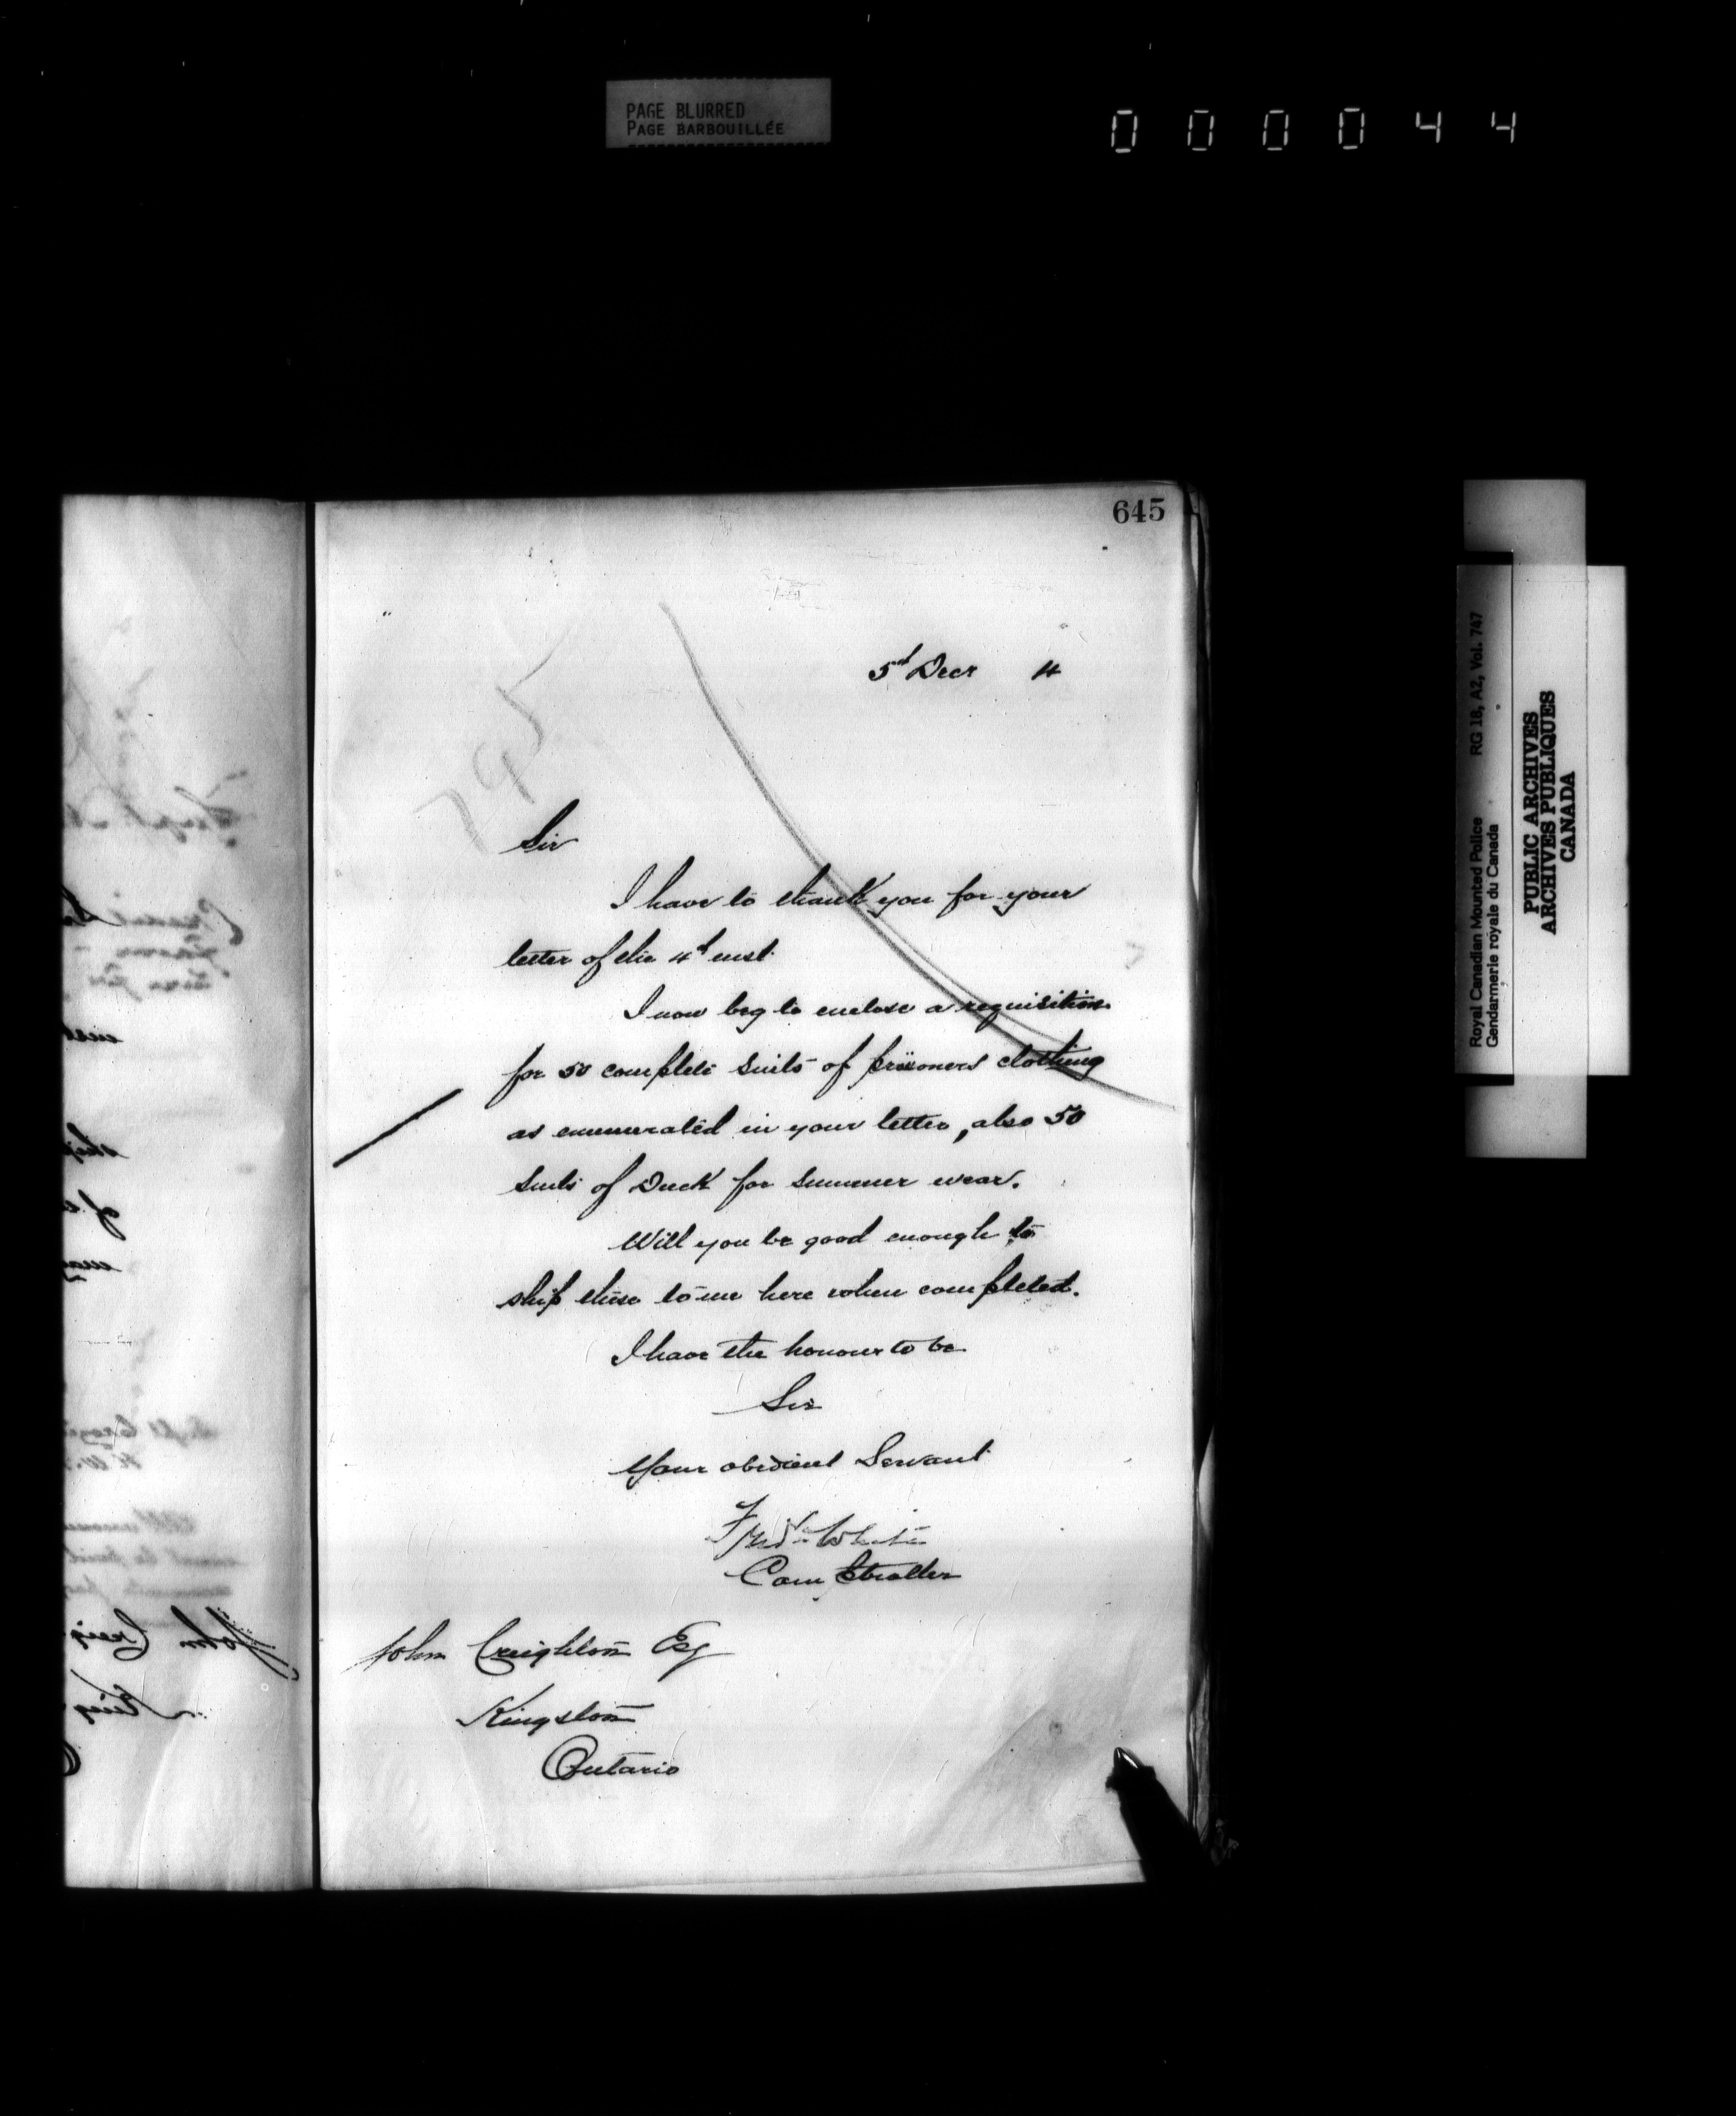 PAGE BLURRED
PAGE BARBOUILLÉE
000044
645
5th Decr 4
745
Sir
I have to thank you for your
letter of the 4th inst.
I now beg to enclose a requisition
for 50 complete suits of prisoners clothing
as enumerated in your letter, also 50
suits of Duck for summer wear.
Will you be good enough to
ship these to me here when completed.
I have the honour to be
Sir
Your obedient Servant
Fred White
Comptroller
John Creighton Esq
Kingston
Ontario
Royal Canadian Mounted Police RG 18, A2, Vol. 747
Gendarmerie royale du Canada
PUBLIC ARCHIVES
ARCHIVES PUBLIQUES
CANADA